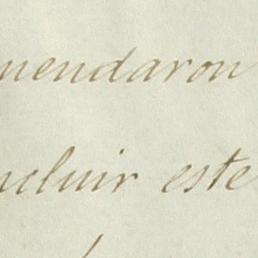 mendaron
ncluir este